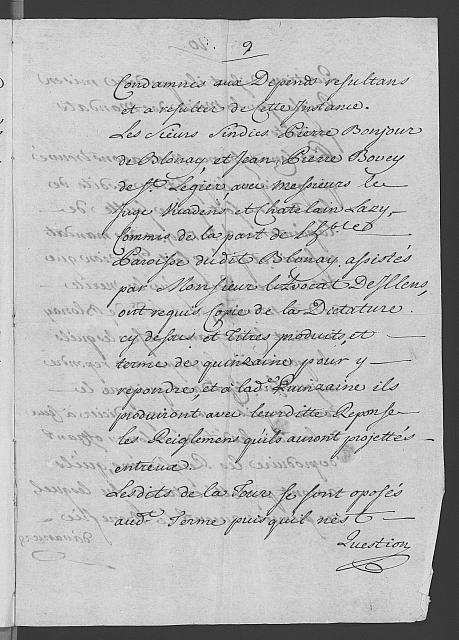 9
Condamnés aux Depends resultans
et a resulter de Cette Instance.
Les Sieurs Sindics Pierre Bonjour
de Blonay et Jean Pierre Bovey
de St. Légier, avec Messieurs le
Juge Vuadens et Chatelain Lazy,
Commis de la part de l'h.ble et
Paroisse dudit Blonay, assistés
par Monsieur l'avocat DeIllens,
ont requis Copie de la Dictature
cy dessus et Titres produits, et
terme de quinzaine pour y
repondre, et à lad.e Quinzaine ils
produiront avec leurditte Reponse
les Reiglemens qu'ils auront projettés
entreux.
Lesdits de la Tour se sont oposés
aud.t Terme puisquil nest
Question